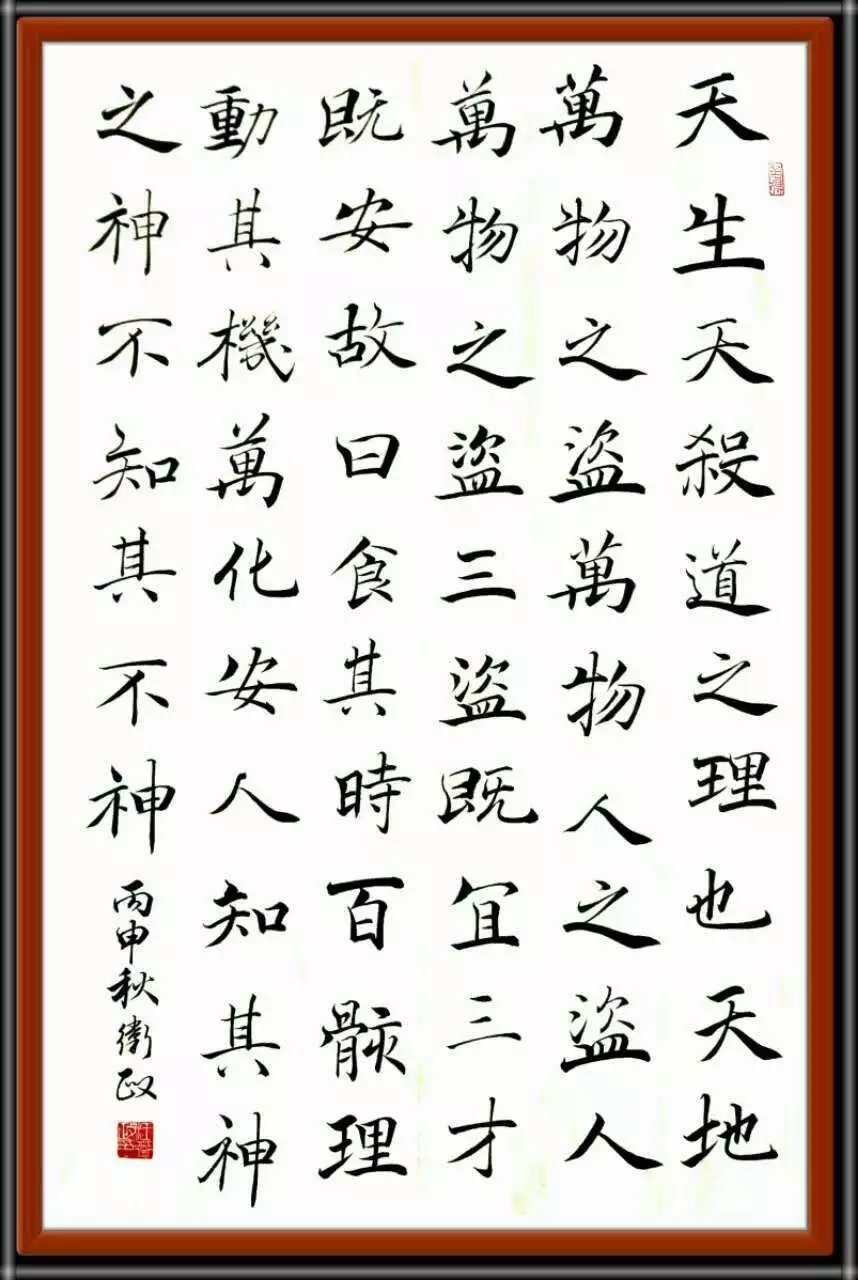 天生天殺道之理也天地
萬物之盜萬物人之盜人
萬物之盜三盜既冝三才
既安故曰食其時百骸理
動其機萬化安人知其神
之神不知其不神
丙申秋衛政